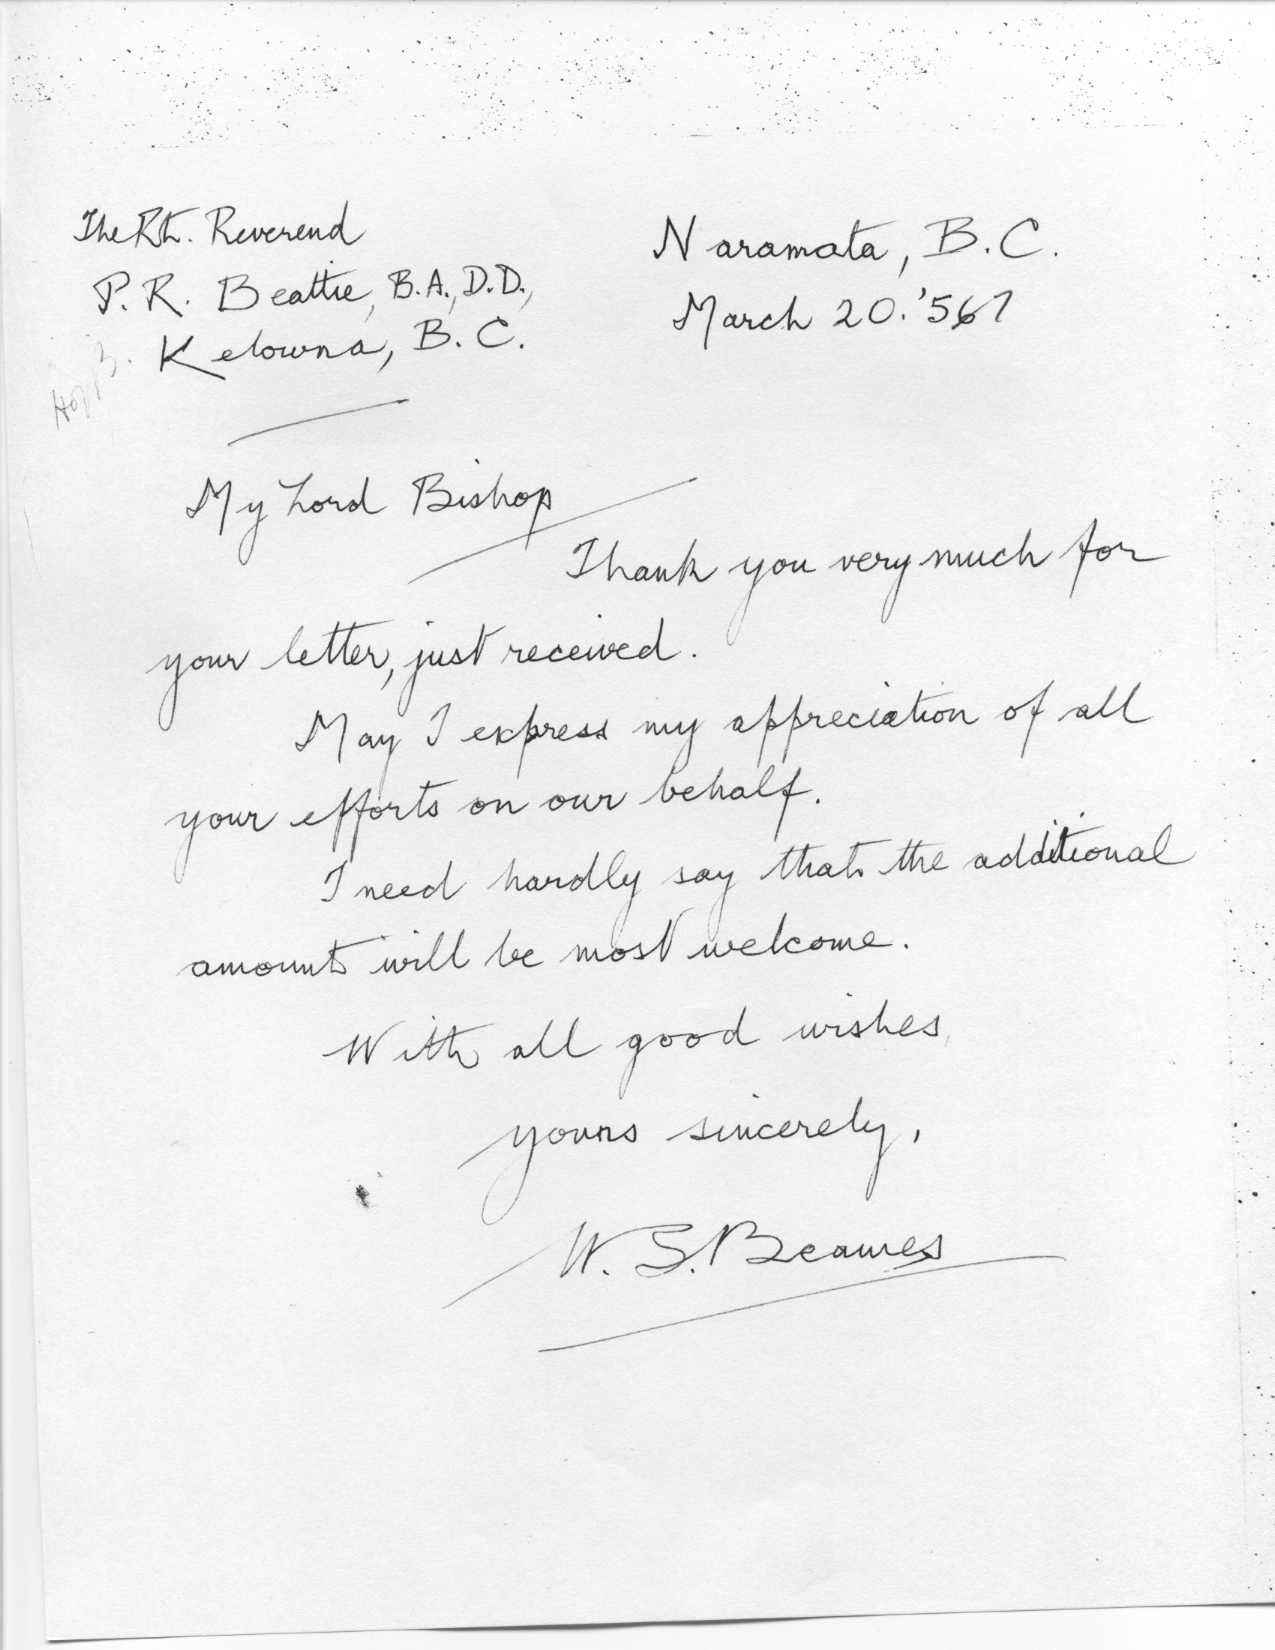 The Rt. Reverend
P. R. Beattie, B.A., D.D.,
Kelowna, B.C.
Naramata, B.C.
March 20. '567
My Lord Bishop
Thank you very much for
your letter, just received.
May I express my appreciation of all
your efforts on our behalf.
I need hardly say that the additional
amount will be most welcome.
With all good wishes,
yours sincerely,
W. S. Beames